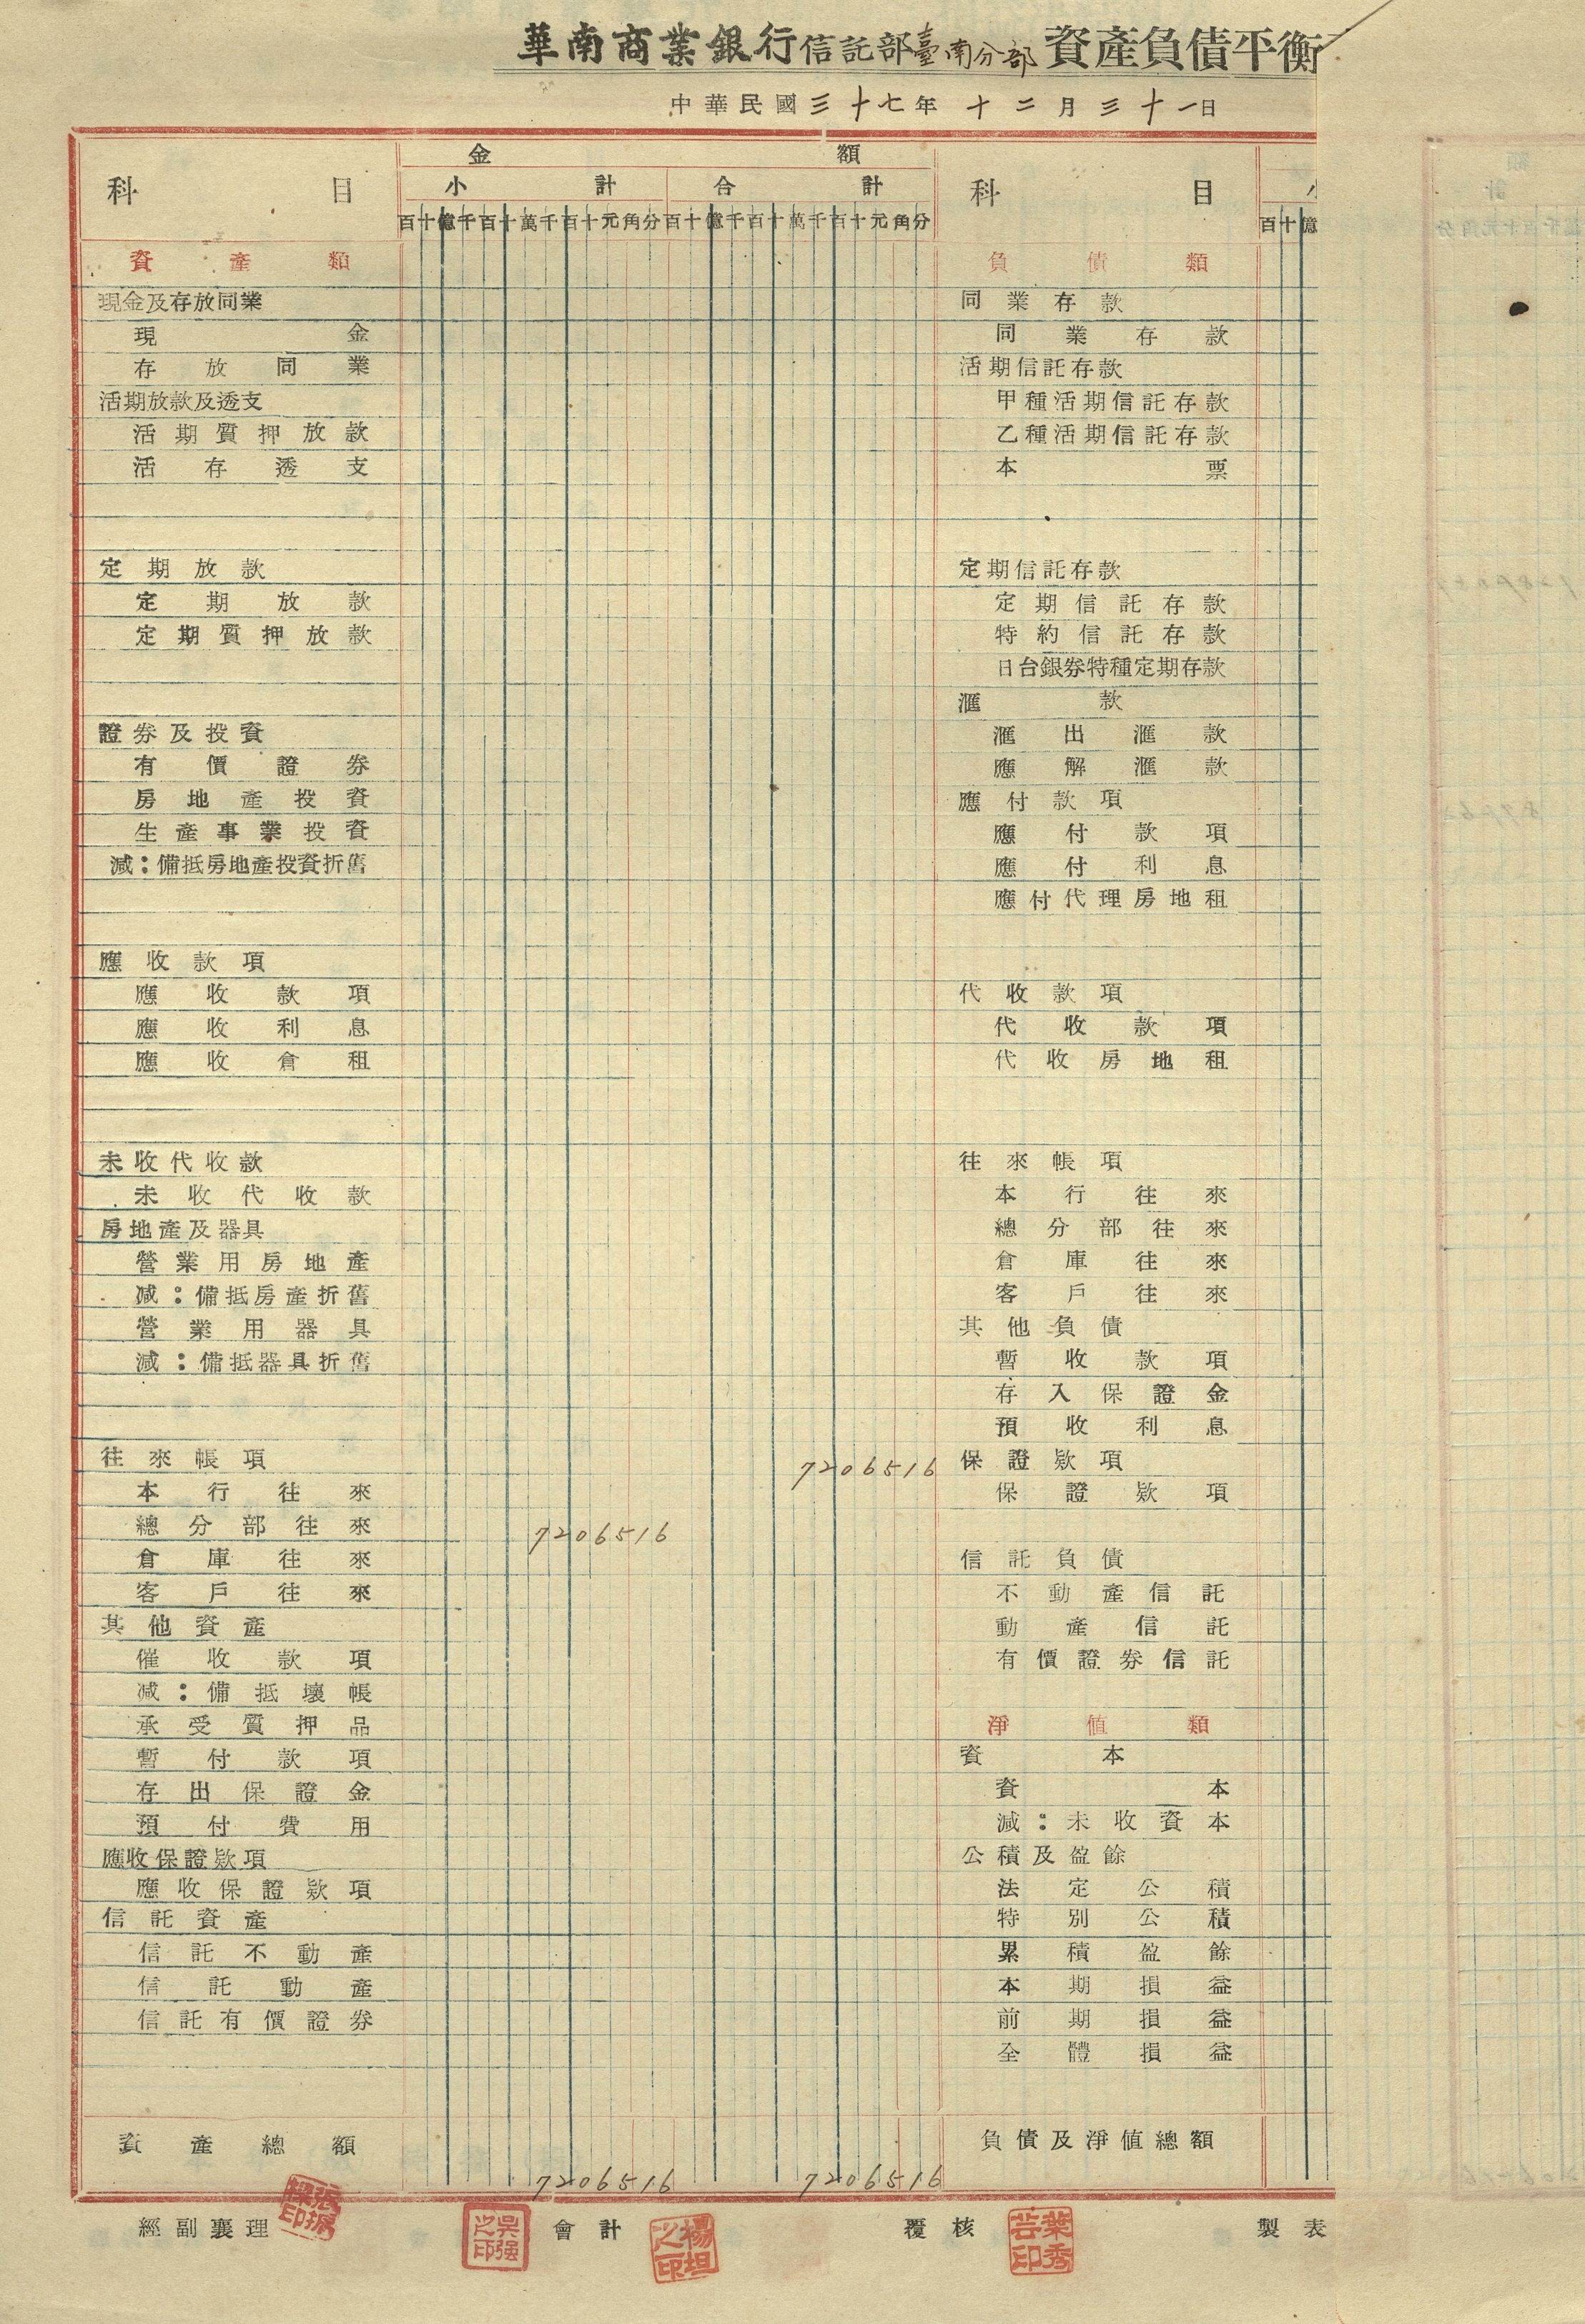 華南商業銀行信託部臺南分部 資產負債平衡
中華民國三十七年十二月三十一日
科目 金額 科目
小計 合計
百十億千百十萬千百十元角分 百十億千百十萬千百十元角分 百十億
資產類 負債類
現金及存放同業 同業存款
現金 同業存款
存放同業 活期信託存款
活期放款及透支 甲種活期信託存款
活期質押放款 乙種活期信託存款
活存透支 本票
定期放款 定期信託存款
定期放款 定期信託存款
定期質押放款 特約信託存款
日台銀券特種定期存款
滙款
證券及投資 滙出滙款
有價證券 應解滙款
房地產投資 應付款項
生產事業投資 應付款項
減：備抵房地產投資折舊 應付利息
應付代理房地租
應收款項
應收款項 代收款項
應收利息 代收款項
應收倉租 代收房地租
未收代收款 往來帳項
未收代收款 本行往來
房地產及器具 總分部往來
營業用房地產 倉庫往來
減：備抵房產折舊 客戶往來
營業用器具 其他負債
減：備抵器具折舊 暫收款項
存入保證金
預收利息
往來帳項 7206516 保證欵項
本行往來 保證欵項
總分部往來 7206516
倉庫往來 信託負債
客戶往來 不動產信託
其他資產 動產信託
催收款項 有價證券信託
減：備抵壞帳
承受質押品 淨值類
暫付款項 資本
存出保證金 資本
預付費用 減：未收資本
應收保證欵項 公積及盈餘
應收保證欵項 法定公積
信託資產 特別公積
信託不動產 累積盈餘
信託動產 本期損益
信託有價證券 前期損益
全體損益
資產總額 7206516 7206516 負債及淨值總額
經副襄理 會計 覆核 製表
吳強之印 楊坦之印 葉秀芸印